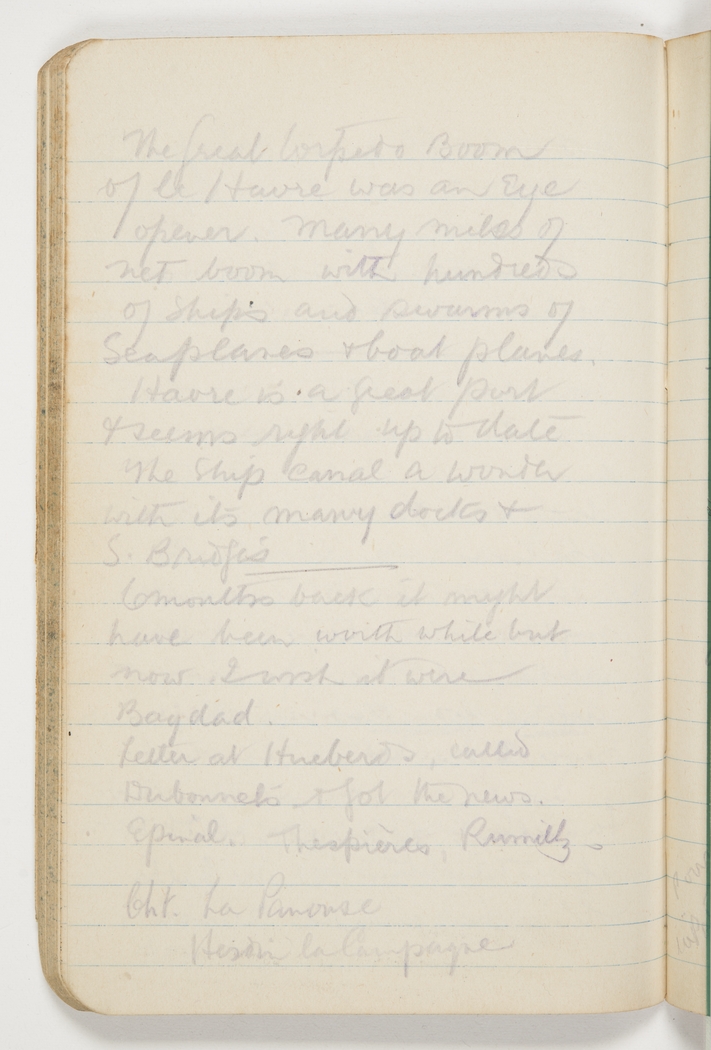 The Great torpedo Boom
of le Havre was an Eye
opener. Many miles of
net boom with hundreds
of ships and swarms of
Seaplanes & boat planes.
Havre is a great port
& seems right up to date
The Ship canal a wonder
with its many docks &
S. Bridges
6 months back it might
have been worth while but
now I wish it were
Bagdad.
Letter at Hueberds, called
Dubonnets & got the news.
Epinal. Thespières, Rumilly
Cht. La Panouse
Hesdin la Campagne